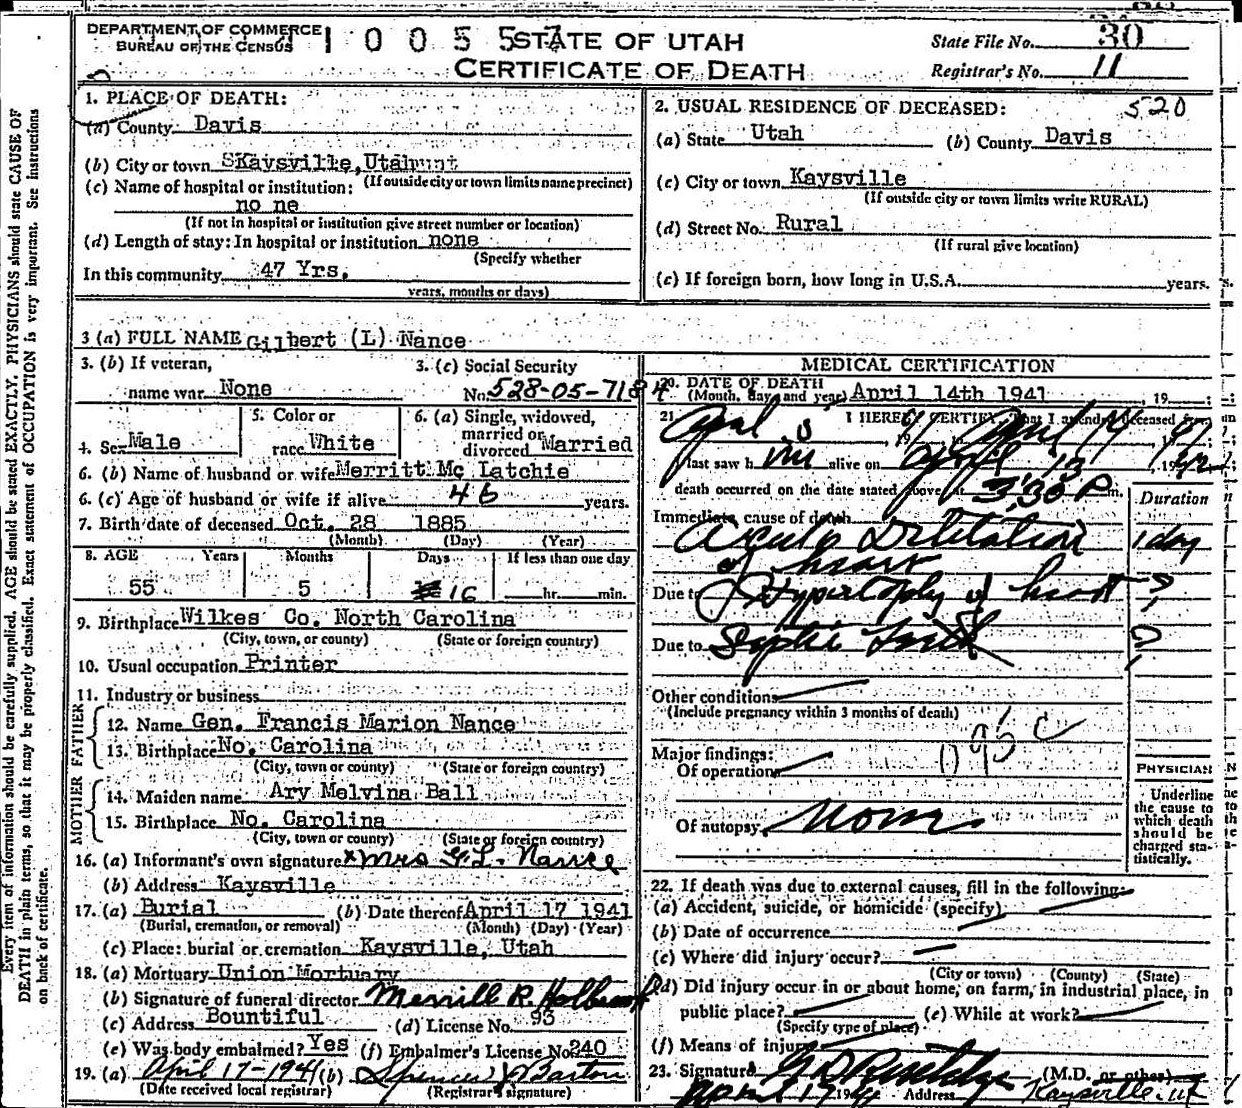 DEPARTMENT OF COMMERCE
BUREAU OF THE CENSUS
1 0 0 5 5 7
STATE OF UTAH
CERTIFICATE OF DEATH
State File No. 30
Registrar's No. 11
1. PLACE OF DEATH:
(a) County Davis
(b) City or town Kaysville, Utah
(If outside city or town limits name precinct)
(c) Name of hospital or institution:
no ne
(If not in hospital or institution give street number or location)
(d) Length of stay: In hospital or institution none
(Specify whether
In this community 47 Yrs.
years, months or days)
2. USUAL RESIDENCE OF DECEASED: 520
(a) State Utah (b) County Davis
(c) City or town Kaysville
(If outside city or town limits write RURAL)
(d) Street No. Rural
(If rural give location)
(e) If foreign born, how long in U.S.A. years.
3 (a) FULL NAME Gilbert (L) Nance
3. (b) If veteran, name war None
3. (c) Social Security No. 528-05-7184
4. Sex Male
5. Color or race White
6. (a) Single, widowed, married or divorced Married
6. (b) Name of husband or wife Merritt Mc Latchie
6. (c) Age of husband or wife if alive 46 years.
7. Birth date of deceased Oct. 28 1885
(Month) (Day) (Year)
8. AGE Years Months Days If less than one day
55 5 16 hr. min.
9. Birthplace Wilkes Co. North Carolina
(City, town, or county) (State or foreign country)
10. Usual occupation Printer
11. Industry or business
FATHER
12. Name Gen. Francis Marion Nance
13. Birthplace No. Carolina
(City, town or county) (State or foreign country)
MOTHER
14. Maiden name Ary Melvina Ball
15. Birthplace No. Carolina
(City, town or county) (State or foreign country)
16. (a) Informant's own signature x Mrs G.L. Nance
(b) Address Kaysville
17. (a) Burial (b) Date thereof April 17 1941
(Burial, cremation, or removal) (Month) (Day) (Year)
(c) Place: burial or cremation Kaysville, Utah
18. (a) Mortuary Union Mortuary
(b) Signature of funeral director Merrill R. Holbrook
(c) Address Bountiful (d) License No. 93
(e) Was body embalmed? Yes (f) Embalmer's License No. 240
19. (a) April 17-1941 (b) Spencer J Barton
(Date received local registrar) (Registrar's signature)
MEDICAL CERTIFICATION
20. DATE OF DEATH
(Month, day and year) April 14th 1941, 19
21. I HEREBY CERTIFY, that I attended deceased from
April , 19 41 to April 14, 19 41
I last saw him alive on April 13, 19 41
death occurred on the date stated above at 3:30 P m.
Duration
Immediate cause of death
Acute Dilitation 1 day
of heart
Due to Hypertrophy of heart ?
Due to Septic Teeth ?
Other conditions
(Include pregnancy within 3 months of death)
095 c
Major findings:
Of operation
Of autopsy None
PHYSICIAN
Underline
the cause to
which death
should be
charged sta-
tistically.
22. If death was due to external causes, fill in the following:
(a) Accident, suicide, or homicide (specify)
(b) Date of occurrence
(c) Where did injury occur?
(City or town) (County) (State)
(d) Did injury occur in or about home, on farm, in industrial place, in
public place? (e) While at work?
(Specify type of place)
(f) Means of injury
23. Signature (M.D. or other)
April 17 1941 Address Kaysville, Ut
Every item of information should be carefully supplied. AGE should be stated EXACTLY. PHYSICIANS should state CAUSE OF
DEATH in plain terms, so that it may be properly classified. Exact statement of OCCUPATION is very important. See instructions
on back of certificate.